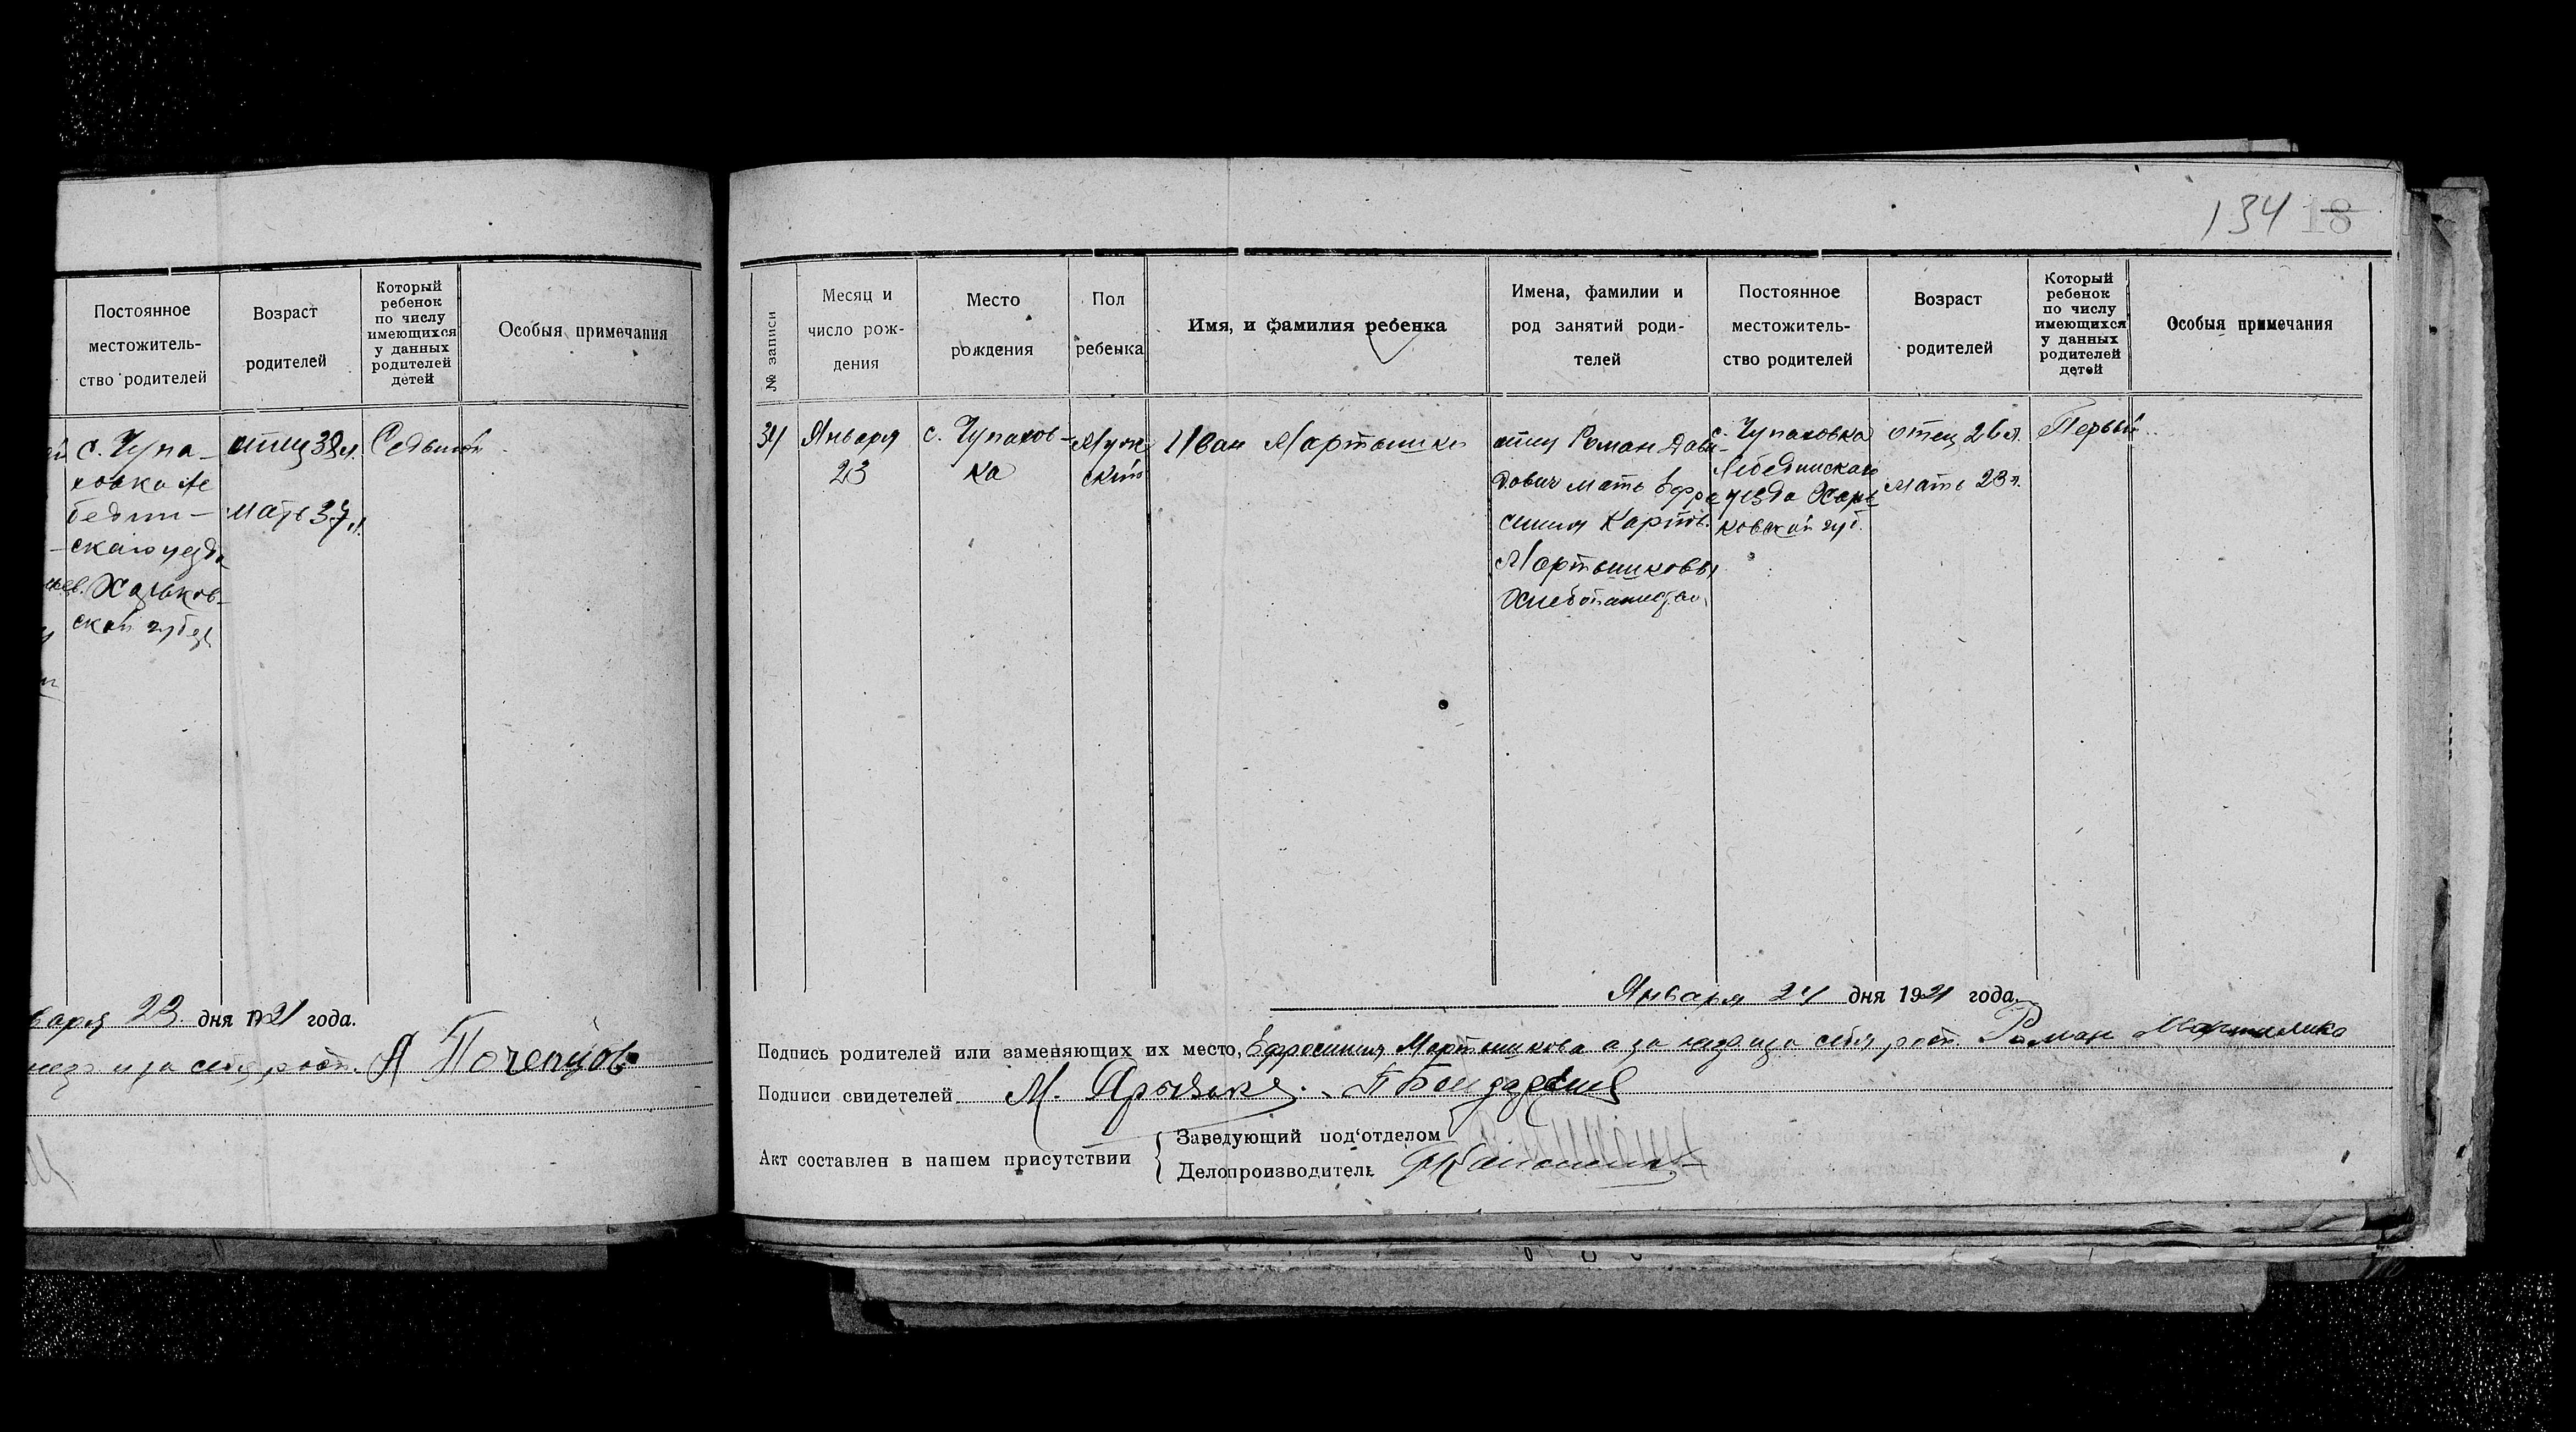 Постоянное
местожитель-
ство родителей
Возраст
родителей
Который
ребенок
по числу
имеющихся
у данных
родителей
детей
Особыя примечания
с. Чупа-
ховка Ле
бедин-
скаго уезда
Харьков-
ской губер
отец 38 л.
мать 37 л.
Седьмой
варя 23 дня 1921 года.
А Почепцов
134 18
№ записи
Месяц и
число рож-
дения
Место
рождения
Пол
ребенка
Имя, и фамилия ребенка
Имена, фамилии и
род занятий роди-
телей
Постоянное
местожитель-
ство родителей
Возраст
родителей
Который
ребенок
по числу
имеющихся
у данных
родителей
детей
Особыя примечания
34
Января
23
с. Чупахов-
ка
Муж
ской
Иван Мартышко
отец Роман Дави-
дович мать Ефро
синия Карпов.
Мартышковы
с. Чупаховка
Лебединскаго
уезда Харь
ковской губ.
отец 26 л.
мать 23 л.
Первый
Января 24 дня 1921 года.
Подпись родителей или заменяющих их место, Ефросиния Мартышкова а за неграм за себя расп. Роман Мартышко
Подписи свидетелей М.
Акт составлен в нашем присутствии
Заведующий под'отделом
Делопроизводитель